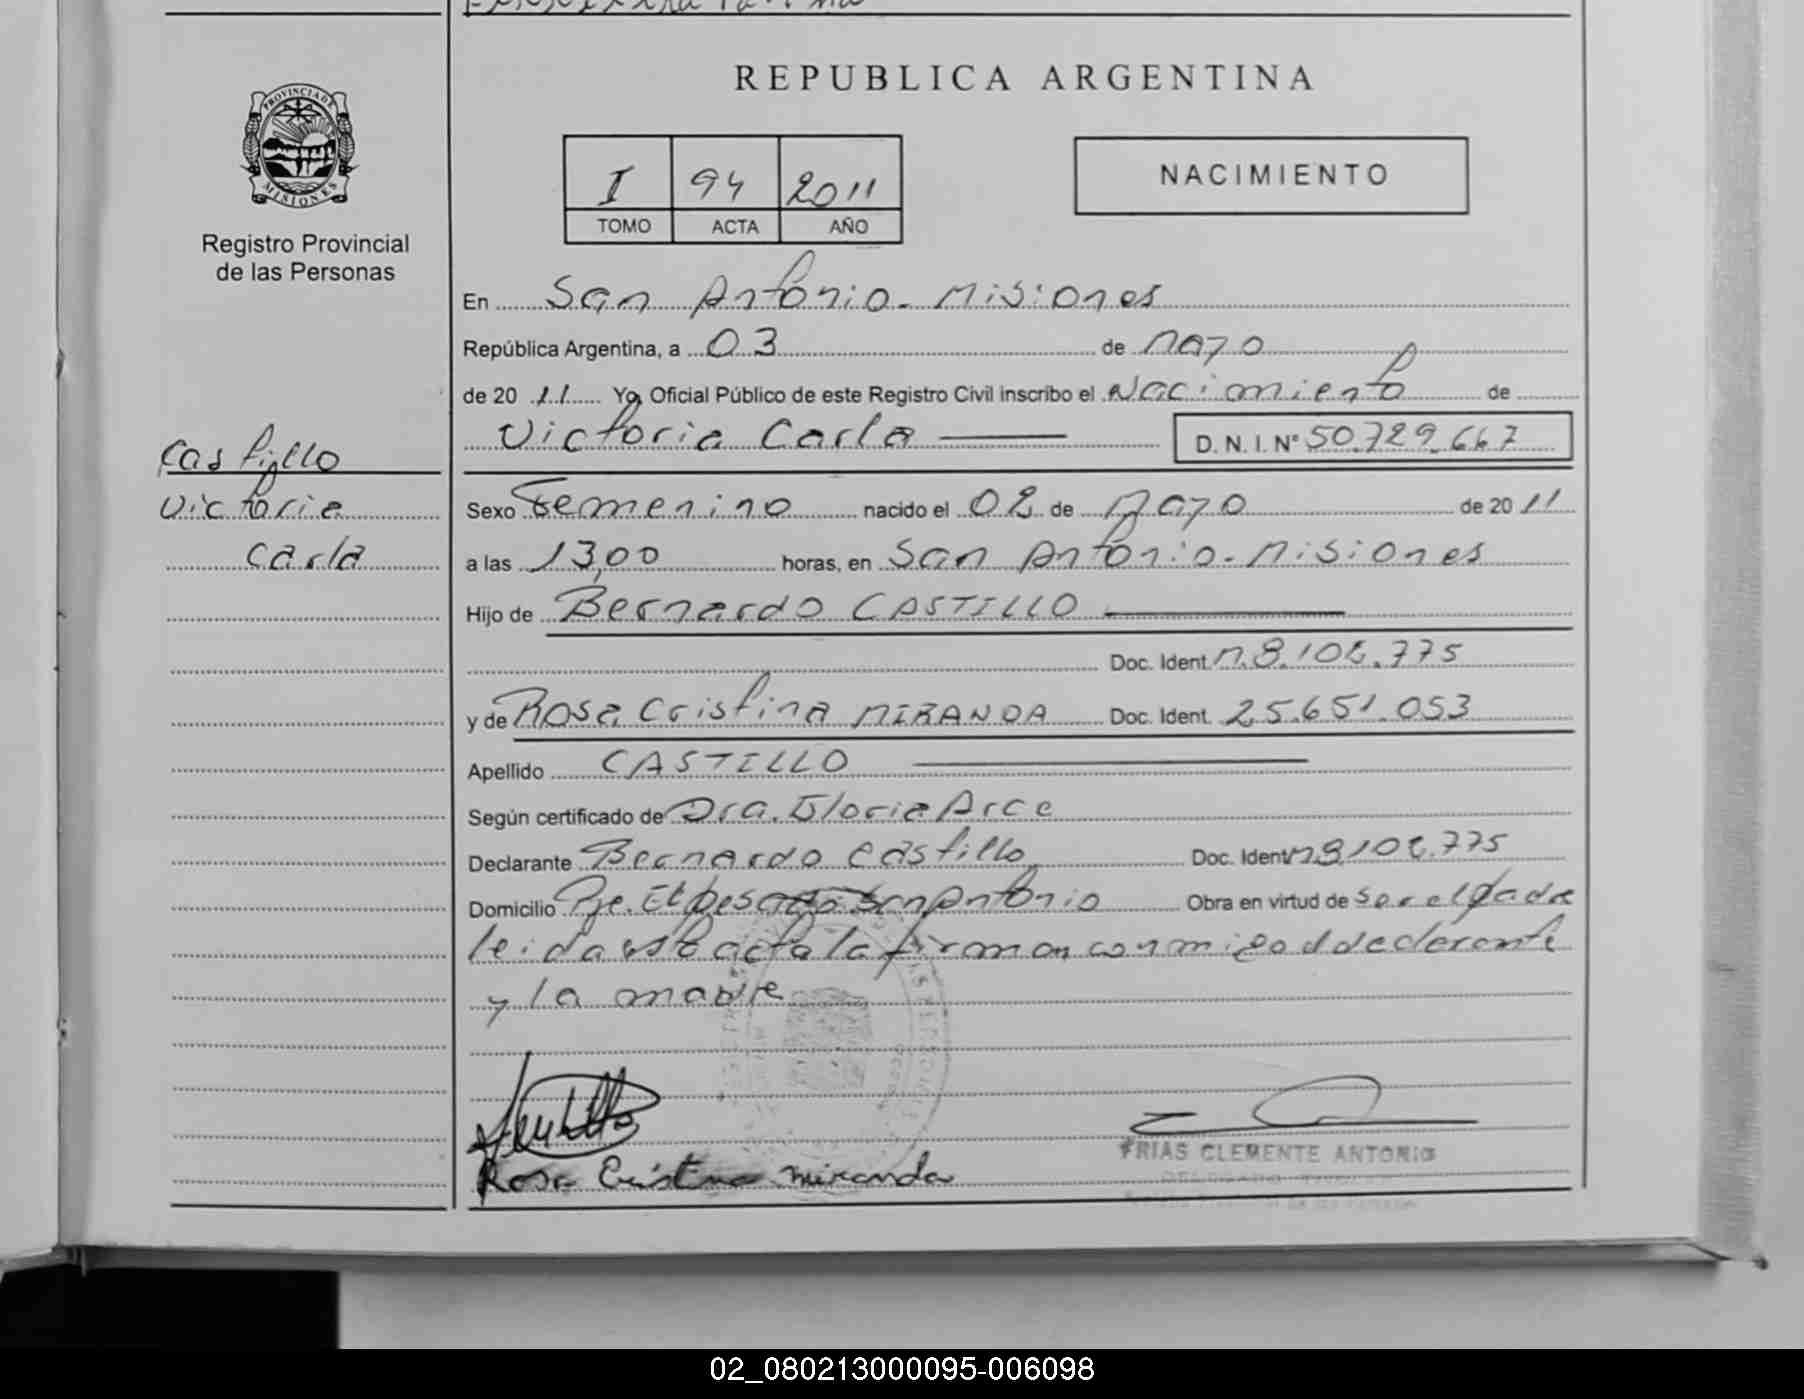 REPUBLICA ARGENTINA
PROVINCIA DE
MISIONES
Registro Provincial
de las Personas
I 94 2011
TOMO ACTA AÑO
NACIMIENTO
En San Antonio - Misiones
República Argentina, a 03 de Mayo
de 20 11 Yo, Oficial Público de este Registro Civil inscribo el Nacimiento de
Victoria Carla D. N. I. Nº 50.729.667
Castillo
Victoria
Carla
Sexo Femenino nacido el 02 de Mayo de 20 11
a las 13,00 horas, en San Antonio - Misiones
Hijo de Bernardo CASTILLO
Doc. Ident. M.8.108.775
y de Rosa Cristina MIRANDA Doc. Ident. 25.651.053
Apellido CASTILLO
Según certificado de Dra. Gloria Arce
Declarante Bernardo Castillo Doc. Ident M8.108.775
Domicilio Pje. El pesado San Antonio Obra en virtud de ser el padre
leida esta acta la firman conmigo el declarante
y la madre
Rosa Cristina Miranda
FRIAS CLEMENTE ANTONIO
02_080213000095-006098